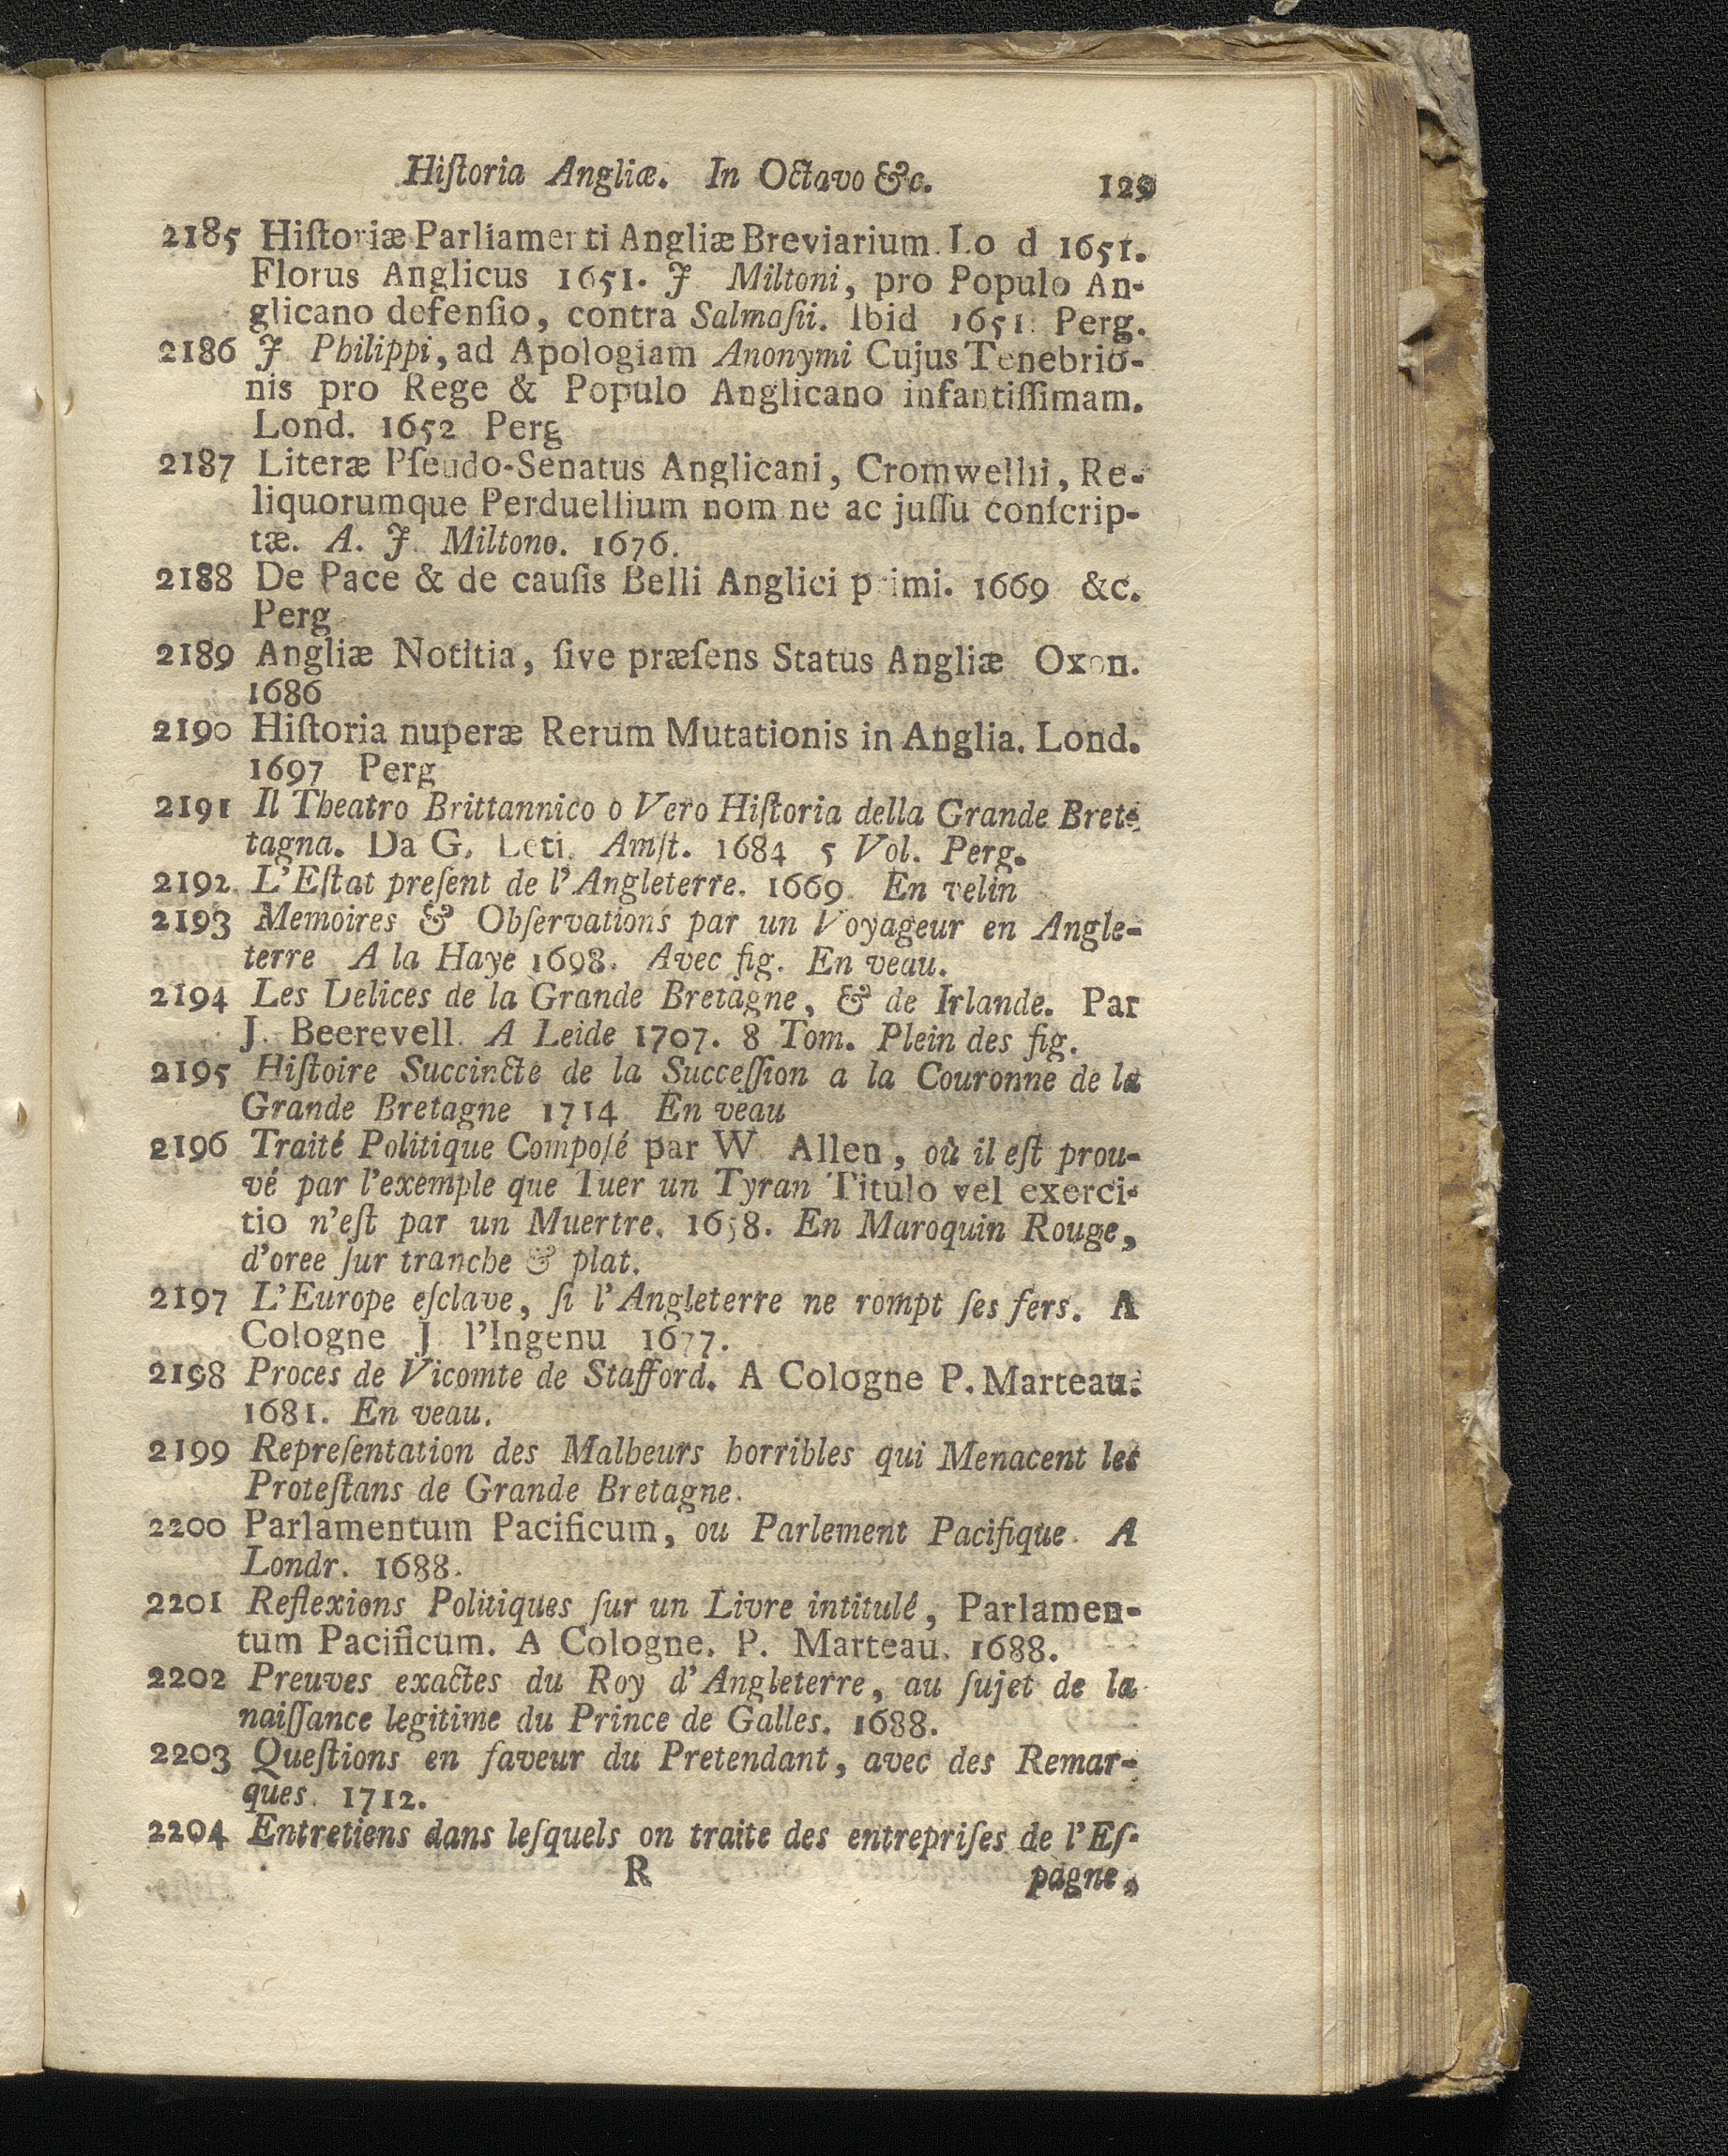 Hiſtoria Angliæ. In Octavo &c. 129
2185 Hiſtoriæ Parliamerti Angliæ Breviarium. Lo d 1651.
Florus Anglicus 1651. J Miltoni, pro Populo An-
glicano defenſio, contra Salmaſii. Ibid 1651. Perg.
2186 J. Philippi, ad Apologiam Anonymi Cujus Tenebrio-
nis pro Rege & Populo Anglicano infantiſſimam.
Lond. 1652 Perg
2187 Literæ Pſeudo-Senatus Anglicani, Cromwellii, Re-
liquorumque Perduellium nom ne ac juſſu conſcrip-
tæ. A. J. Miltono. 1676.
2188 De Pace & de cauſis Belli Anglici p imi. 1669 &c.
Perg
2189 Angliæ Notitia, ſive præſens Status Angliæ Oxon.
1686
2190 Hiſtoria nuperæ Rerum Mutationis in Anglia. Lond.
1697 Perg
2191 Il Theatro Brittannico o Vero Hiſtoria della Grande Bret-
tagna. Da G. Leti. Amſt. 1684 5 Vol. Perg.
2192. L'Eſtat preſent de l'Angleterre. 1669. En velin
2193 Memoires & Obſervations par un Voyageur en Angle-
terre A la Haye 1698. Avec fig. En veau.
2194 Les Delices de la Grande Bretagne, & de Irlande. Par
J. Beerevell. A Leide 1707. 8 Tom. Plein des fig.
2195 Hiſtoire Succincte de la Succeſſion a la Couronne de la
Grande Bretagne 1714 En veau
2196 Traité Politique Compoſé par W. Allen, où il eſt prou-
vé par l'exemple que Tuer un Tyran Titulo vel exerci-
tio n'eſt par un Muertre. 1658. En Maroquin Rouge,
d'oree ſur tranche & plat.
2197 L'Europe eſclave, ſi l'Angleterre ne rompt ſes fers. A
Cologne J l'Ingenu 1677.
2198 Proces de Vicomte de Stafford. A Cologne P. Marteau.
1681. En veau.
2199 Repreſentation des Malheurs horribles qui Menacent les
Proteſtans de Grande Bretagne.
2200 Parlamentum Pacificum, ou Parlement Pacifique. A
Londr. 1688.
2201 Reflexions Politiques ſur un Livre intitulé, Parlamen-
tum Pacificum. A Cologne. P. Marteau. 1688.
2202 Preuves exactes du Roy d'Angleterre, au ſujet de la
naiſſance legitime du Prince de Galles. 1688.
2203 Queſtions en faveur du Pretendant, avec des Remar-
ques. 1712.
2204 Entretiens dans leſquels on traite des entrepriſes de l'Eſ-
R pagne,